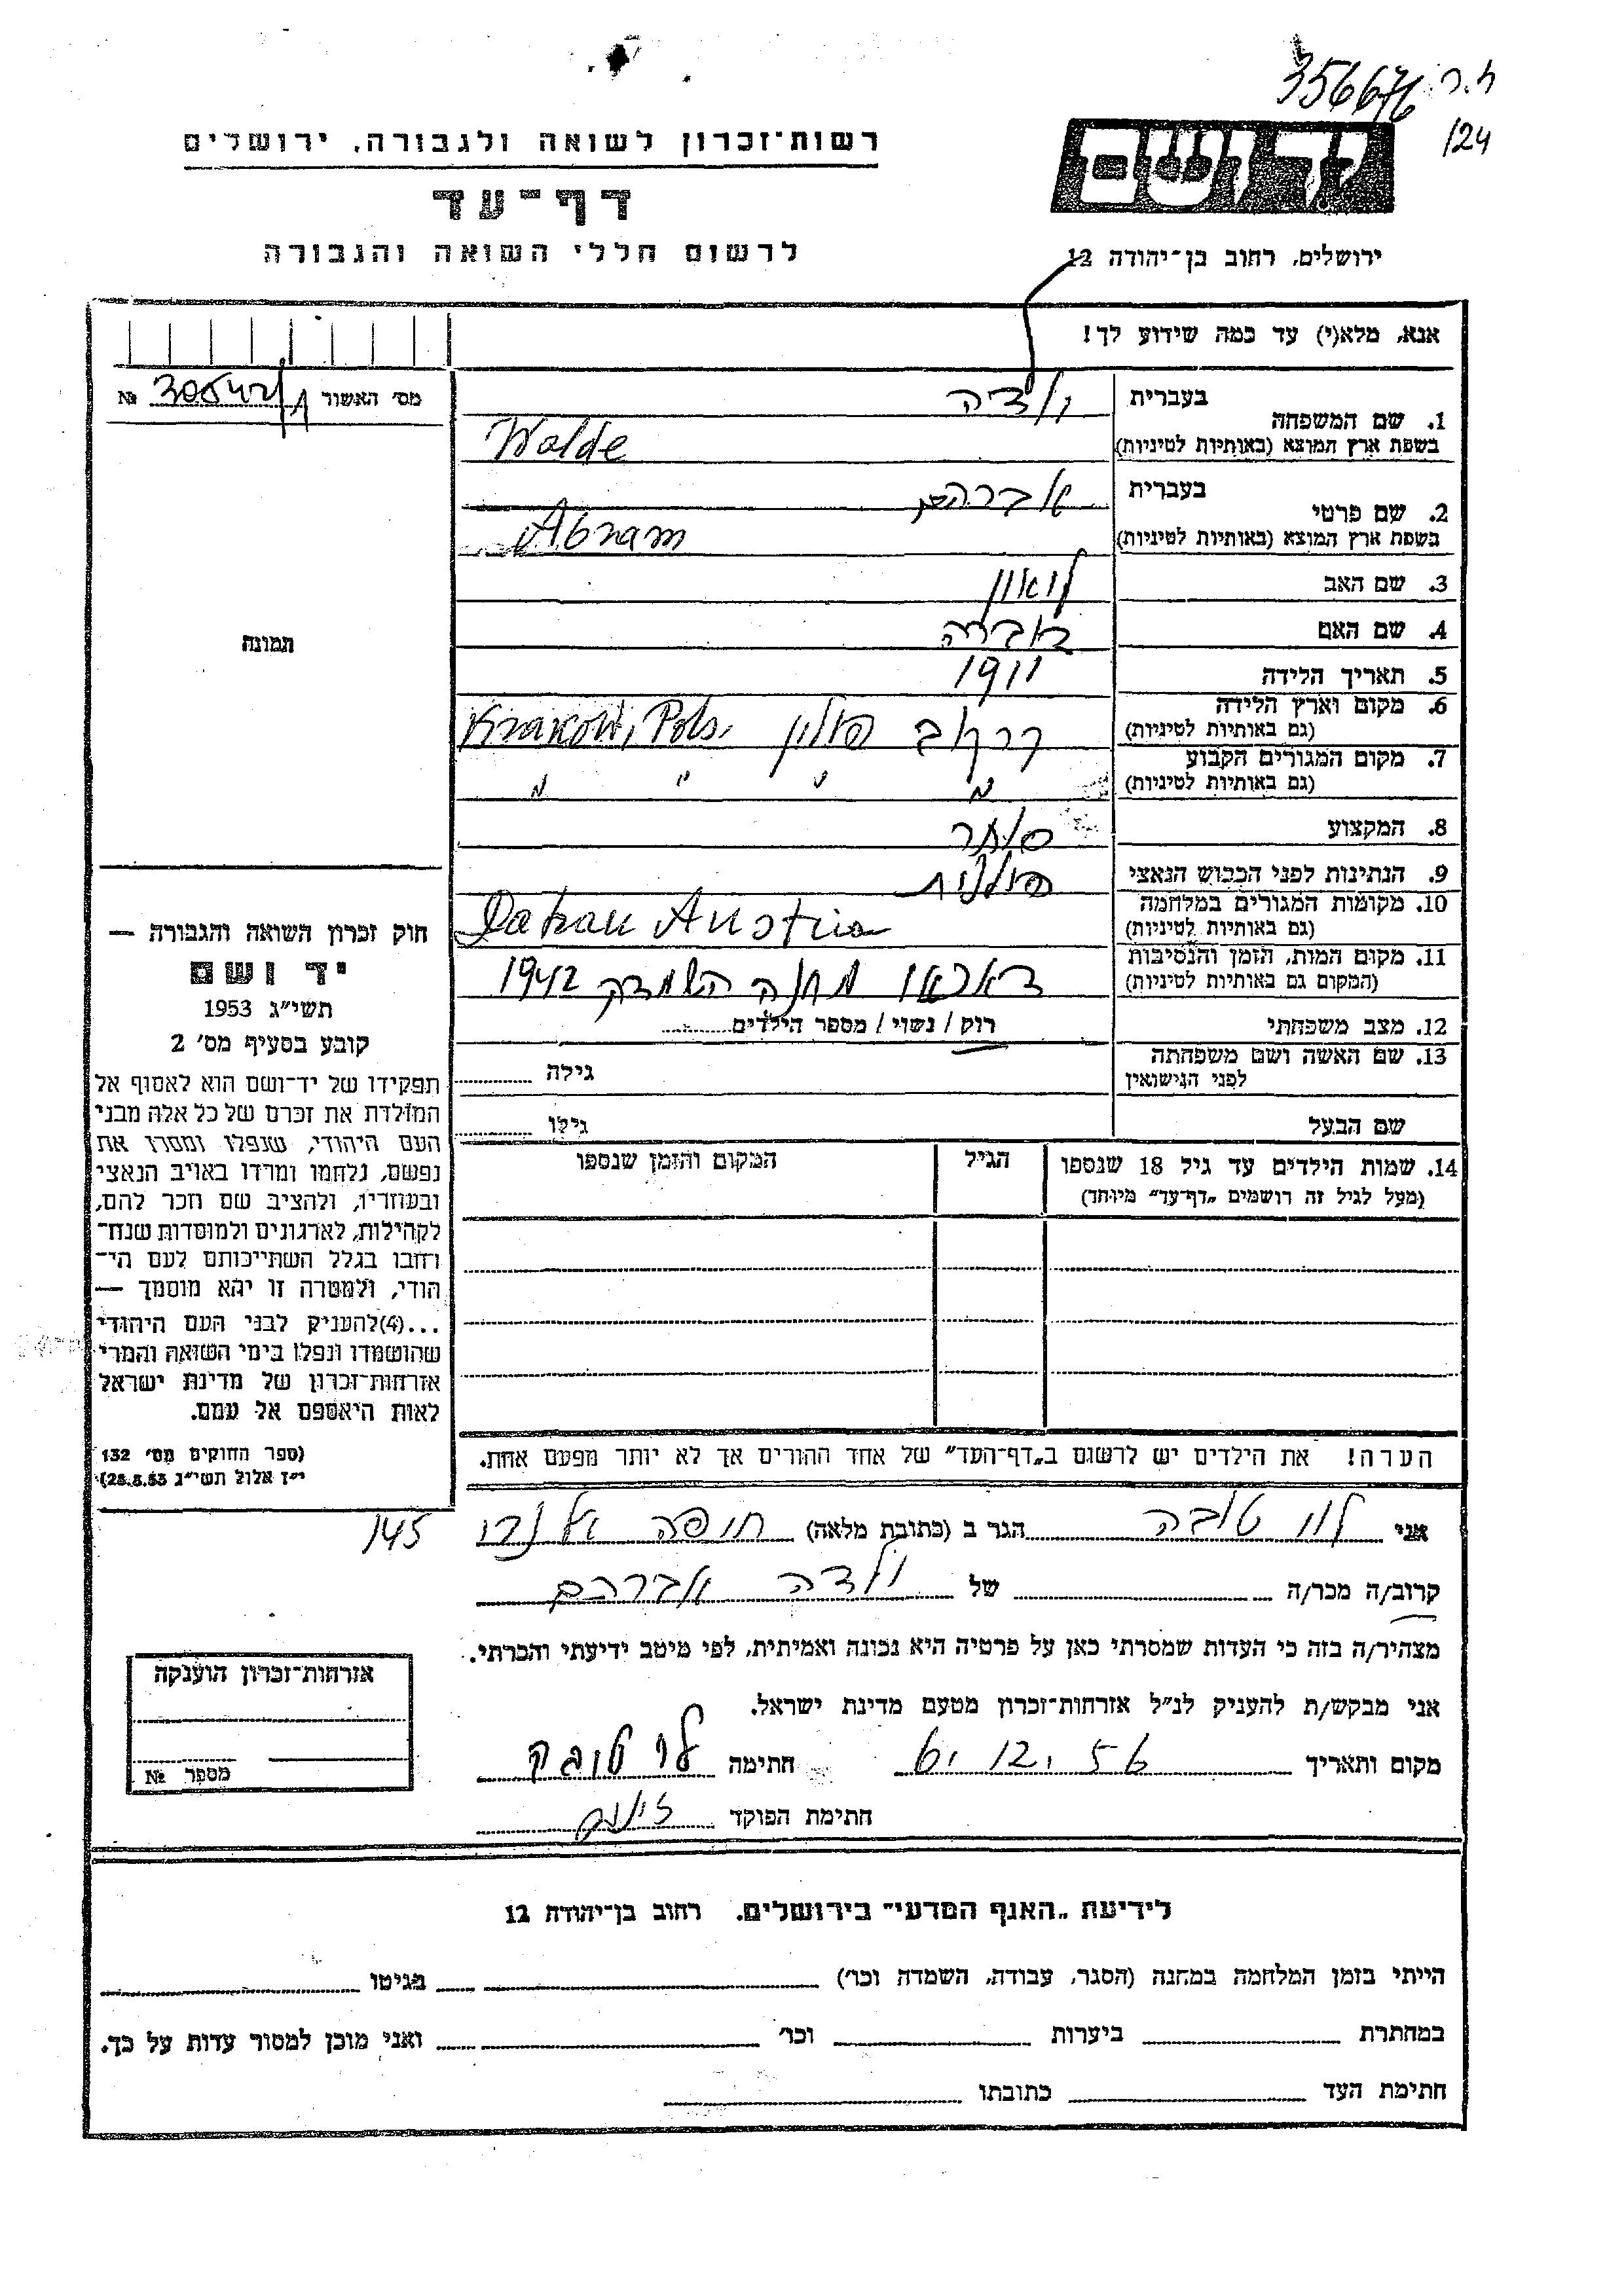 ח.ר 356676
124
יד ושם
רשות־זכרון לשואה ולגבורה, ירושלים
דף־עד
לרשום חללי השואה והגבורה
ירושלים, רחוב בן־יהודה 12
אנא, מלא(י) עד כמה שידוע לך!
מס׳ האשור № 30542/1
1. שם המשפחה בעברית ולדה
בשפת ארץ המוצא (באותיות לטיניות) Walde
2. שם פרטי בעברית אברהם
בשפת ארץ המוצא (באותיות לטיניות) Abram
3. שם האב לואון
4. שם האם
5. תאריך הלידה 1911
6. מקום וארץ הלידה
(גם באותיות לטיניות) קרקוב פולין Krakow, Pols.
7. מקום המגורים הקבוע
(גם באותיות לטיניות) " " " "
8. המקצוע סוחר
9. הנתינות לפני הכבוש הנאצי פולנית
10. מקומות המגורים במלחמה
(גם באותיות לטיניות) Dahau Austria
11. מקום המות, הזמן והנסיבות
(המקום גם באותיות לטיניות) דאכאו מחנה השמדה 1942
12. מצב משפחתי רוק / נשוי / מספר הילדים
13. שם האשה ושם משפחתה
לפני הנישואין גילה
שם הבעל גילו
14. שמות הילדים עד גיל 18 שנספו
(מעל לגיל זה רושמים „דף־עד״ מיוחד)
הגיל
המקום והזמן שנספו
הערה! את הילדים יש לרשום ב„דף־העד״ של אחד ההורים אך לא יותר מפעם אחת.
תמונה
חוק זכרון השואה והגבורה —
יד ושם
תשי״ג 1953
קובע בסעיף מס׳ 2
תפקידו של יד־ושם הוא לאסוף אל
המולדת את זכרם של כל אלה מבני
העם היהודי, שנפלו ומסרו את
נפשם, נלחמו ומרדו באויב הנאצי
ובעוזריו, ולהציב שם וזכר להם,
לקהילות, לארגונים ולמוסדות שנח־
רבו בגלל השתייכותם לעם הי־
הודי, ולמטרה זו יהא מוסמך —
...(4)להעניק לבני העם היהודי
שהושמדו ונפלו בימי השואה והמרי
אזרחות־זכרון של מדינת ישראל
לאות היאספם אל עמם.
(ספר החוקים מס׳ 132
י״ז אלול תשי״ג 28.8.53)
אני לוי טובה הגר ב (כתובת מלאה) 145
קרוב/ה מכר/ה של ולדה אברהם
מצהיר/ה בזה כי העדות שמסרתי כאן על פרטיה היא נכונה ואמיתית, לפי מיטב ידיעתי והכרתי.
אני מבקש/ת להעניק לנ״ל אזרחות־זכרון מטעם מדינת ישראל.
מקום ותאריך 6.12.56 חתימה לוי טובה
חתימת הפוקד
אזרחות־זכרון הוענקה
מספר №
לידיעת „האגף המדעי״ בירושלים. רחוב בן־יהודה 12
הייתי בזמן המלחמה במחנה (הסגר, עבודה, השמדה וכו׳) בגיטו
במחתרת ביערות וכו׳ ואני מוכן למסור עדות על כך.
חתימת העד כתובתו